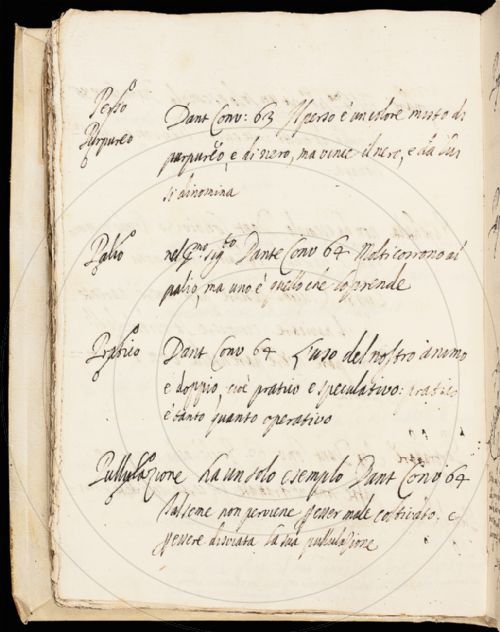 Perso
Purpureo
Dant Conv: 63 Il perso è un colore misto di
purpureo, e di nero, ma vince il nero, e da lui
si dinomina
Palio
nel p.mo sig.to Dante Conv 64 Molti corrono al
palio, ma uno è quello che 'l prende
Pratico
Dant Conv 64 L'uso del nostro animo
e doppio, cioè pratico e speculativo: pratico
è tanto quanto operativo
Pullulazione ha un solo esempio Dant Conv 64
Salseme non perviene p esser male coltivato, e
p essere disviata la sua pullulazione